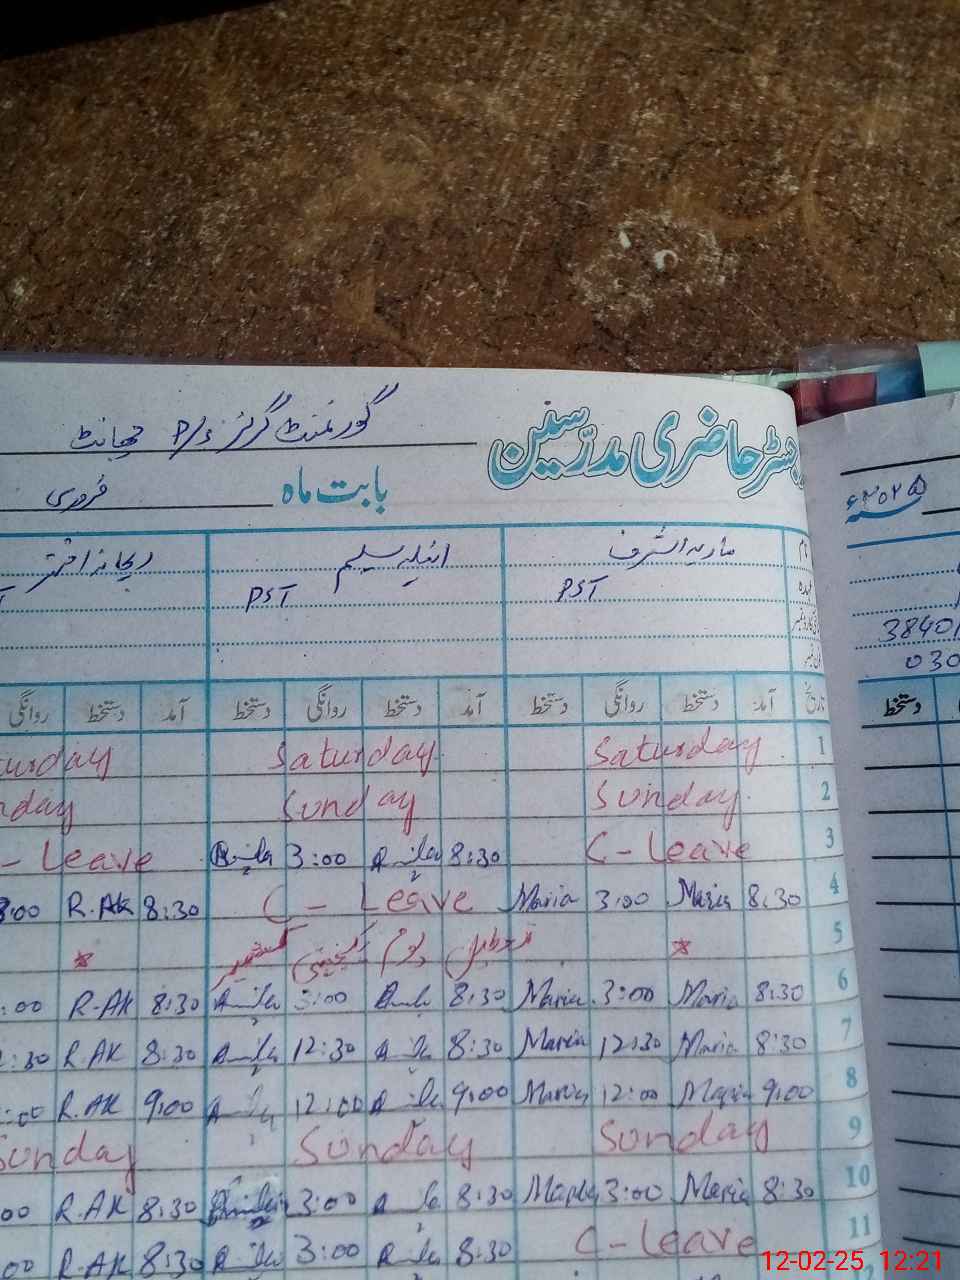 رجسٹر حاضری مدرسین گورنمنٹ گرلز P/S
بابت ماہ فروری ۲۰۲۵ء
نام ماریہ اشرف انیلہ سلیم ریحانہ اختر
عہدہ PST PST
3840
030
تاریخ آمد دستخط روانگی دستخط آمد دستخط روانگی دستخط آمد دستخط روانگی دستخط
1 Saturday Saturday urday
2 Sunday Sunday nday
3 C-Leave 8:30 Anila 3:00 Anila - Leave
4 8:30 Maria 3:00 Maria C- Leave 8:30 R.AK 3:00
5 تعطیل یوم یکجہتی کشمیر
6 8:30 Maria 3:00 Maria 8:30 Anila 3:00 Anila 8:30 R.AK :00
7 8:30 Maria 12:30 Maria 8:30 Anila 12:30 Anila 8:30 R.AK :30
8 9:00 Maria 12:00 Maria 9:00 Anila 12:00 Anila 9:00 R.AK :00
9 Sunday Sunday unday
10 8:30 Maria 3:00 Maria 8:30 Anila 3:00 8:30 R.AK 00
11 C-Leave 8:30 Anila 3:00 Anila 8:30 R.AK 00
12-02-25 12:21